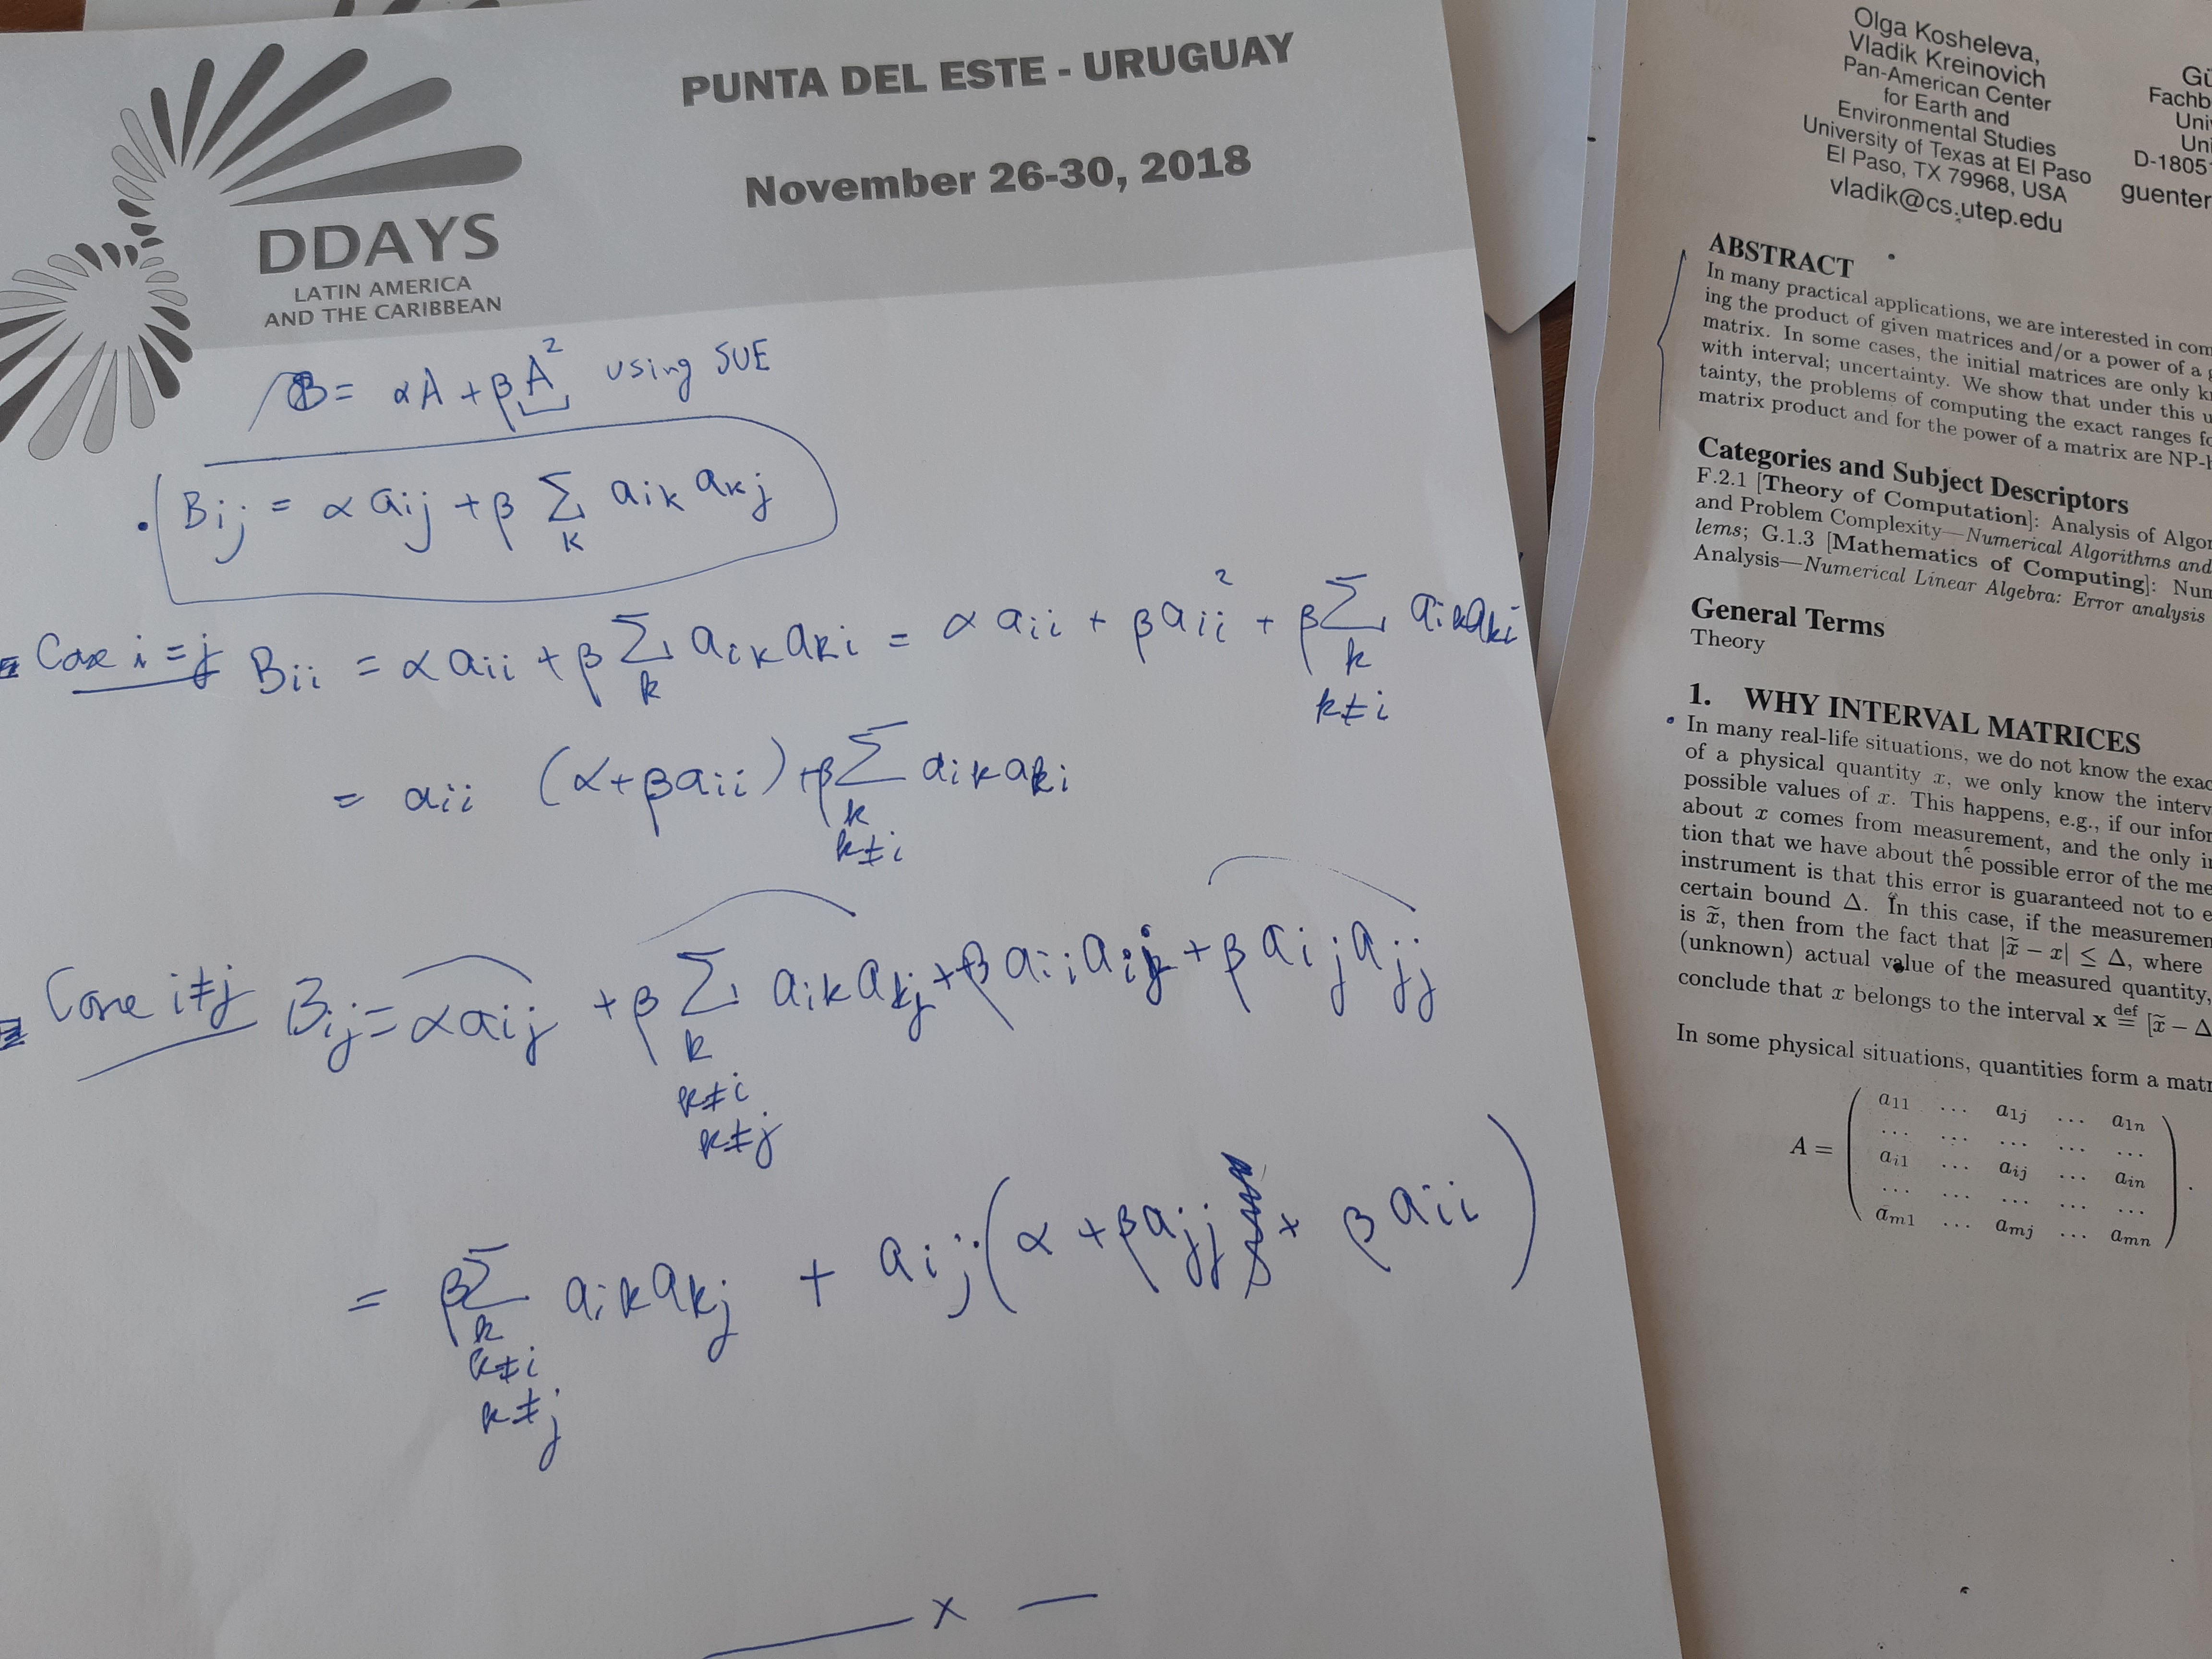 PUNTA DEL ESTE - URUGUAY
November 26-30, 2018
DDAYS
LATIN AMERICA
AND THE CARIBBEAN
B = αA + βA² using SUE
Bij = α aij + β Σ aik akj
k
Case i=j Bii = α aii + β Σ aik aki = α aii + β aii² + β Σ aik aki
k k
k≠i
= aii (α+βaii) + β Σ aik aki
k
k≠i
Case i≠j Bij = αaij + β Σ aik akj + β aii aij + β aij ajj
k
k≠i
k≠j
= β Σ aik akj + aij (α + βajj + β aii)
k
k≠i
k≠j
x
Olga Kosheleva,
Vladik Kreinovich
Pan-American Center
for Earth and
Environmental Studies
University of Texas at El Paso
El Paso, TX 79968, USA
vladik@cs.utep.edu
Gü
Fachb
Uni
Uni
D-1805
guenter
ABSTRACT
In many practical applications, we are interested in com
ing the product of given matrices and/or a power of a g
matrix. In some cases, the initial matrices are only k
with interval; uncertainty. We show that under this u
tainty, the problems of computing the exact ranges fo
matrix product and for the power of a matrix are NP-h
Categories and Subject Descriptors
F.2.1 [Theory of Computation]: Analysis of Algor
and Problem Complexity—Numerical Algorithms and
lems; G.1.3 [Mathematics of Computing]: Num
Analysis—Numerical Linear Algebra: Error analysis
General Terms
Theory
1. WHY INTERVAL MATRICES
In many real-life situations, we do not know the exac
of a physical quantity x, we only know the interv
possible values of x. This happens, e.g., if our infor
about x comes from measurement, and the only in
tion that we have about the possible error of the me
instrument is that this error is guaranteed not to e
certain bound Δ. In this case, if the measuremen
is x̃, then from the fact that |x̃ − x| ≤ Δ, where
(unknown) actual value of the measured quantity,
conclude that x belongs to the interval x def= [x̃ − Δ
In some physical situations, quantities form a matr
a11 ... a1j ... a1n
... ... ... ... ...
A = ai1 ... aij ... ain .
... ... ... ... ...
am1 ... amj ... amn